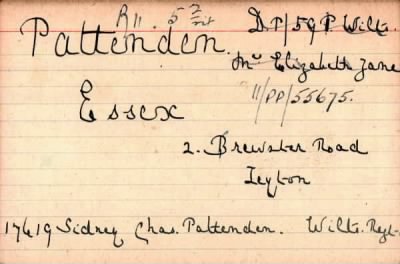 R11. 5 2/
Pattenden. DP/59P Wilts.
Mrs Elizabeth Jane
11/PP/55675.
Essex
2. Brewster Road
Leyton
17419 Sidney Chas. Pattenden. Wilts. Regt.